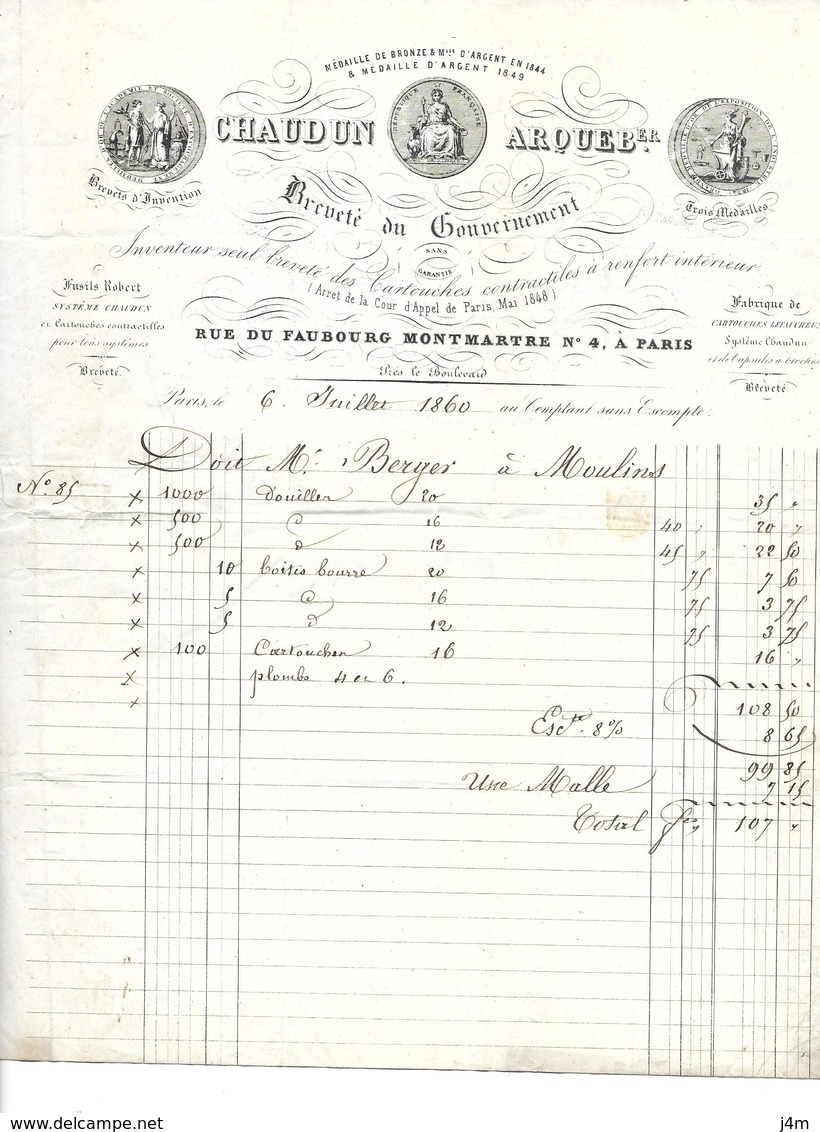 MÉDAILLE DE BRONZE & Mlle D'ARGENT EN 1844
& MÉDAILLE D'ARGENT 1849
CHAUDUN ARQUEBER
RÉPUBLIQUE FRANÇAISE
Brevets d'Invention
Trois Medailles
Breveté du Gouvernement
SANS
GARANTIE
Inventeur seul breveté des Cartouches contractiles à renfort intérieur
(Arret de la Cour d'Appel de Paris, Mai 1848)
Fusils Robert
SYSTÈME CHAUDUN
et Cartouches contractilles
pour tous systèmes
Breveté.
Fabrique de
CARTOUCHES LEFAUCHEUX
Système Chaudun
et de Capsules à broches
Breveté.
RUE DU FAUBOURG MONTMARTRE No 4, À PARIS
Près le Boulevard
Paris, le 6 Juillet 1860 au Comptant sans Escompte.
Doit Mr Berger à Moulins
No. 85 x 1000 Douilles 20 35 "
x 500 d 16 40 " 20 "
x 500 d 12 45 " 22 50
x 10 boites bourre 20 75 7 50
x 5 d 16 75 3 75
x 5 d 12 75 3 75
x 100 Cartouches 16 16 "
x plombs 4 et 6.
x 108 50
Escpte. 8% 8 65
99 85
Une Malle 7 15
Total fcs 107 "
j4m